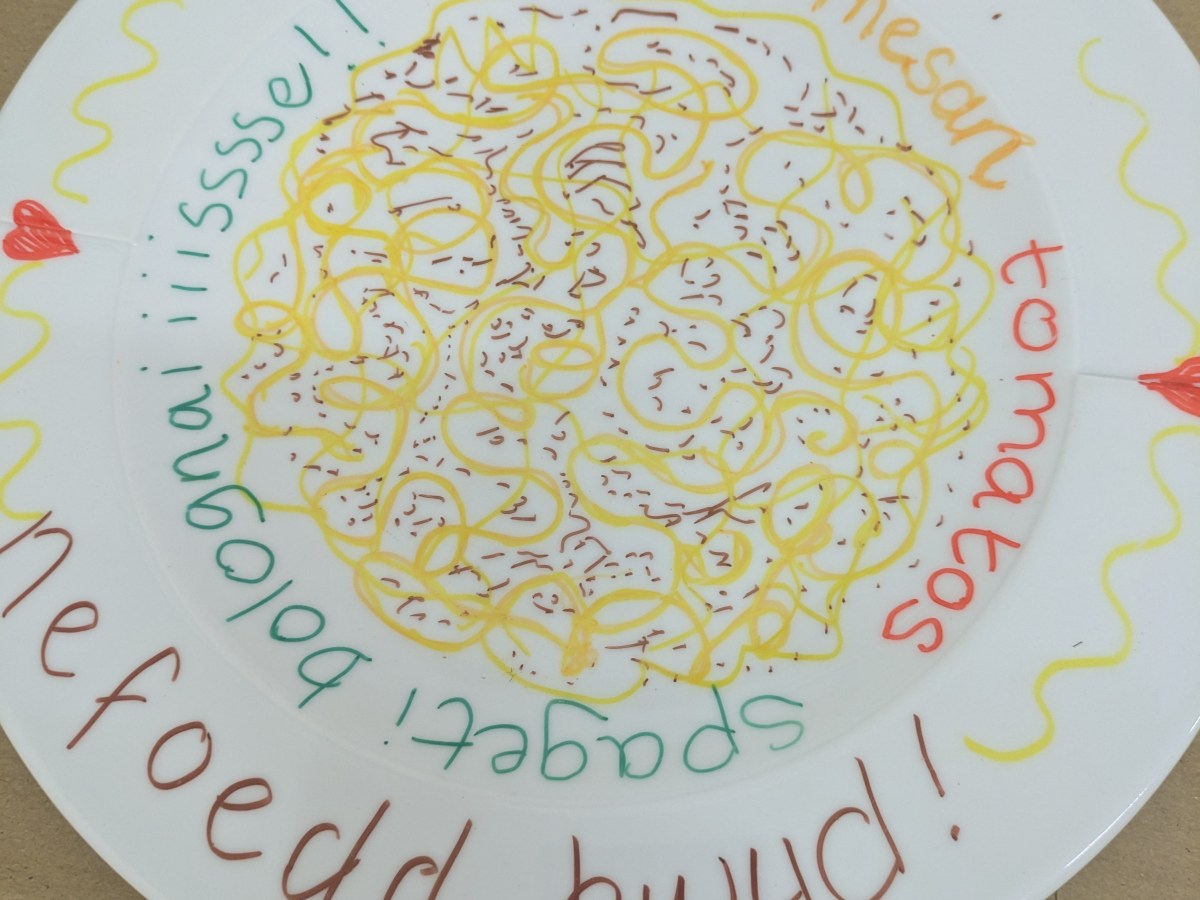 mesan
tomatos
spageti bolognaiiiisssse!!
nefoedd bwyd!